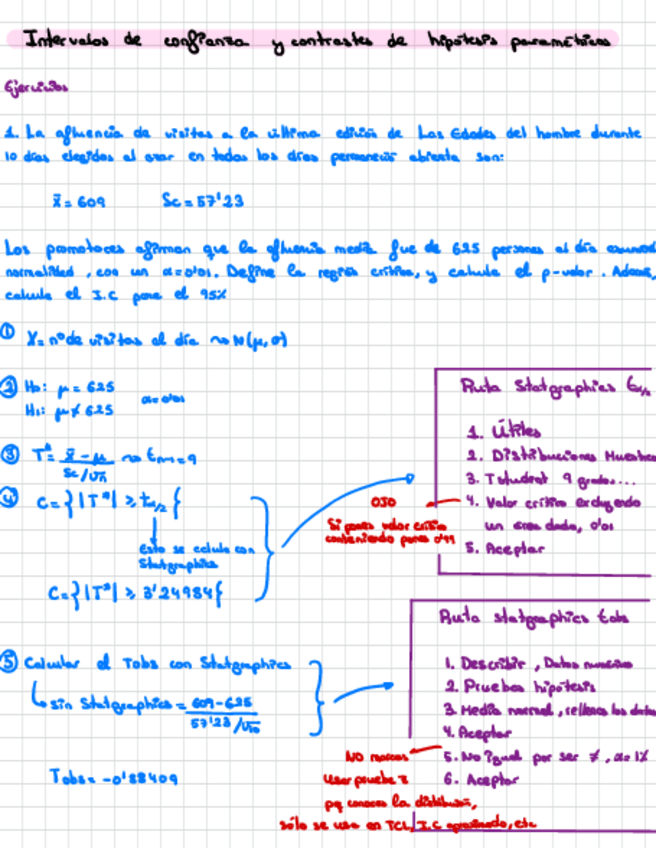 Intervalos de confianza y contrastes de hipótesis paramétricos
Ejercicios
1. La afluencia de visitas a la última edición de Las Edades del hombre durante
10 días elegidos al azar en todos los días permaneció abierta son:
x̄ = 609 Sc = 57'23
Los promotores afirman que la afluencia media fue de 625 personas al día
normalidad, con un α=0'01. Define la región crítica, y calcula el p-valor. Además,
calcula el I.C para el 95%
① X= nº de visitas al día ~ N(μ,σ)
② H₀: μ = 625
H₁: μ ≠ 625
α=0'01
③ T* = x̄ - μ / Sc/√n ~ t n-1 = 9
④ C = {|T*| ≥ t α/2 {
Esto se calcula con
Statgraphics
C = {|T*| ≥ 3'24984{
⑤ Calcular el Tobs con Statgraphics
sin Statgraphics = 609-625 / 57'23/√10
Tobs = -0'88409
Ruta Statgraphics
1. Útiles
2. Distribuciones
3. T student 9 grados...
4. Valor crítico excluyendo
un área dada, 0'01
5. Aceptar
OJO
Si pones valor crítico
conteniendo pones 0'99
Ruta statgraphics tobs
1. Describir, Datos numéricos
2. Pruebas hipótesis
3. Media normal, rellenas los datos
4. Aceptar
5. No igual por ser ≠, α=1%
6. Aceptar
NO marcas
usar prueba z
pq conoces la distribución,
sólo se usa en TCL, I.C aproximado, etc